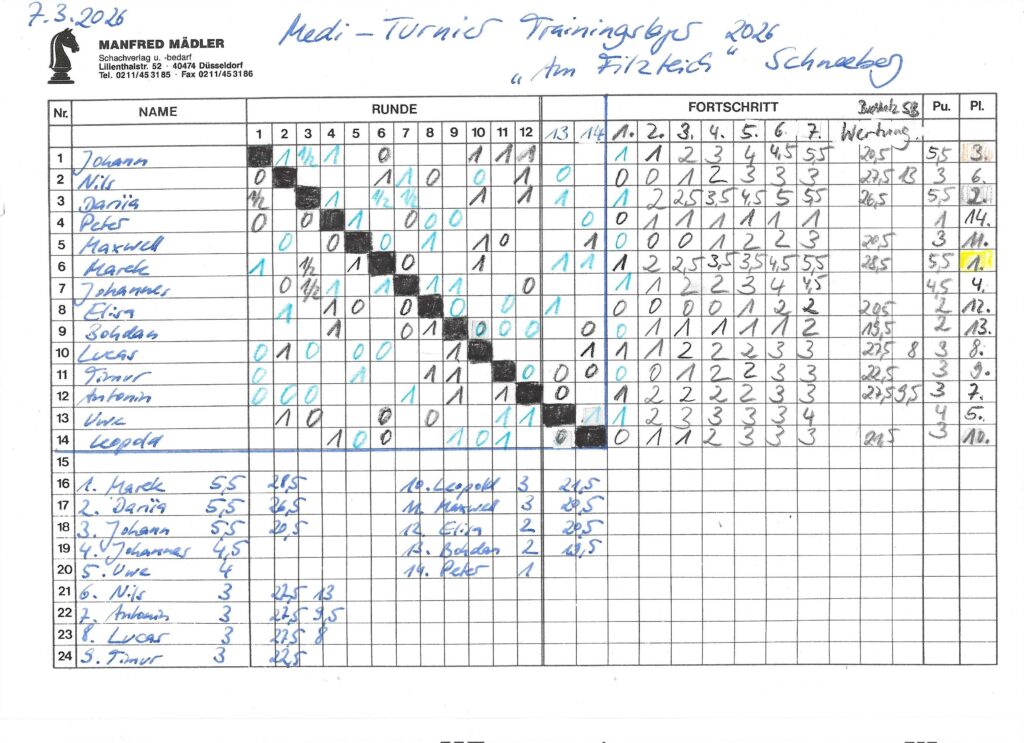 7.3.2026
Medi-Turnier Trainingslager 2026
MANFRED MÄDLER
Schachverlag u. -bedarf
Lilienthalstr. 52 · 40474 Düsseldorf
Tel. 0211/45 31 85 · Fax 0211/45 31 86
"Am Filzteich" Schneeberg
Nr. NAME RUNDE FORTSCHRITT Buchholz SB Pu. Pl.
1 2 3 4 5 6 7 8 9 10 11 12 13 14 1. 2. 3. 4. 5. 6. 7. Wertung
1 Johann 1 ½ 1 0 1 1 1 1 1 2 3 4 4,5 5,5 20,5 5,5 3.
2 Nils 0 1 1 0 0 1 0 0 0 1 2 3 3 3 27,5 13 3 6.
3 Dariia ½ 1 ½ ½ 1 1 1 1 2 2,5 3,5 4,5 5 5,5 26,5 5,5 2.
4 Peter 0 0 1 0 0 0 0 1 1 1 1 1 1 1 14.
5 Maxwell 0 0 0 1 1 0 1 0 0 0 1 2 2 3 20,5 3 11.
6 Marek 1 ½ 1 0 1 1 1 1 2 2,5 3,5 3,5 4,5 5,5 28,5 5,5 1.
7 Johannes 0 ½ 1 1 1 1 0 1 1 2 2 3 4 4,5 4,5 4.
8 Elisa 1 1 0 0 0 0 1 0 0 0 0 1 2 2 20,5 2 12.
9 Bohdan 1 0 1 0 0 0 0 0 1 1 1 1 1 2 19,5 2 13.
10 Lucas 0 1 0 0 0 1 1 1 1 2 2 2 3 3 27,5 8 3 8.
11 Timur 0 1 1 1 0 0 0 0 0 1 2 2 3 3 22,5 3 9.
12 Antonin 0 0 0 1 1 1 0 1 2 2 2 2 3 3 27,5 9,5 3 7.
13 Uwe 1 0 0 0 1 1 1 1 2 3 3 3 3 4 4 5.
14 Leopold 1 0 0 1 0 1 0 0 1 1 2 3 3 3 21,5 3 10.
15
16 1. Marek 5,5 28,5 10. Leopold 3 21,5
17 2. Dariia 5,5 26,5 11. Maxwell 3 20,5
18 3. Johann 5,5 20,5 12. Elisa 2 20,5
19 4. Johannes 4,5 13. Bohdan 2 19,5
20 5. Uwe 4 14. Peter 1
21 6. Nils 3 27,5 13
22 7. Antonin 3 27,5 9,5
23 8. Lucas 3 27,5 8
24 9. Timur 3 22,5